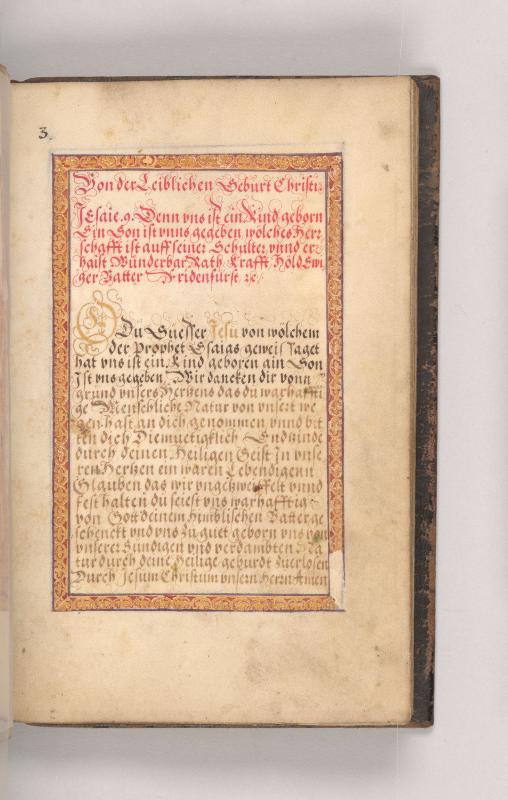 3.
Von der Leiblichen Geburt Christi.
JEsaie. 9. Denn vns ist ein Kind geborn
Ein Son ist vnns gegeben, wölches Herr
schafft ist auff seiner Schulter vnnd er
haist Wunderbar Rath Krafft Höld Ewi
ger Vatter Fridenfürst. ꝛc.
O Du Suesser Jesu von wölchem
der Prophet Esaias geweissaget
hat vns ist ein Kind geboren ain Son
Jst vns gegeben, Wir dancken dir vonn
grund vnsers Hertzens das du warhaffti
ge Menschliche Natur von vnsert we
gen hast an dich genommen vnnd bit
ten dich Diemuetigklich Entzünde
durch deinen Heiligen Geist Jn vnse
ren Hertzen ein waren Lebendigenn
Glauben das wir vngezweiffelt vnnd
fest halten du seiest vns warhafftig
von Gott deinem himblischen Vatter ge
schenckt vnd vns zu guet geborn vns von
vnserer Sundigen vnd verdambten Na
tur durch deine Heilige geburdt zuerlösen
Durch Jesum Christum vnsern Herrn Amen